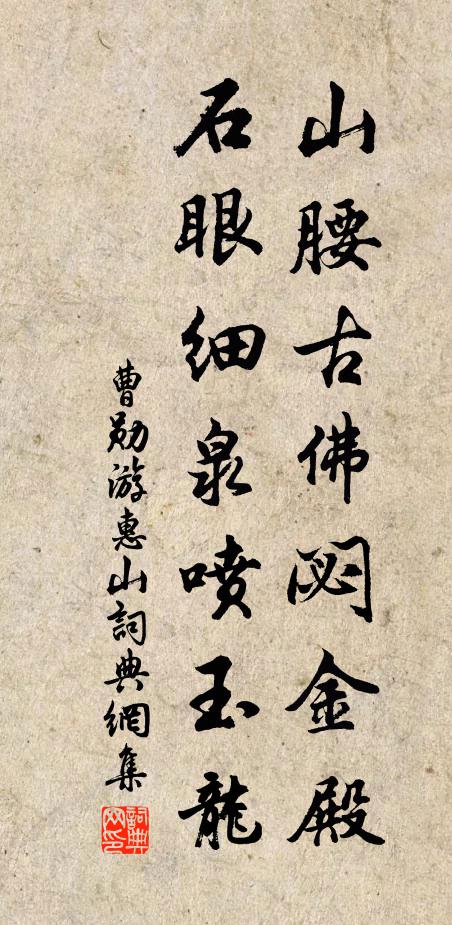 山腰古佛閟金殿
石眼細泉噴玉龍
曹勛游惠山詞典網集
詞典
网印